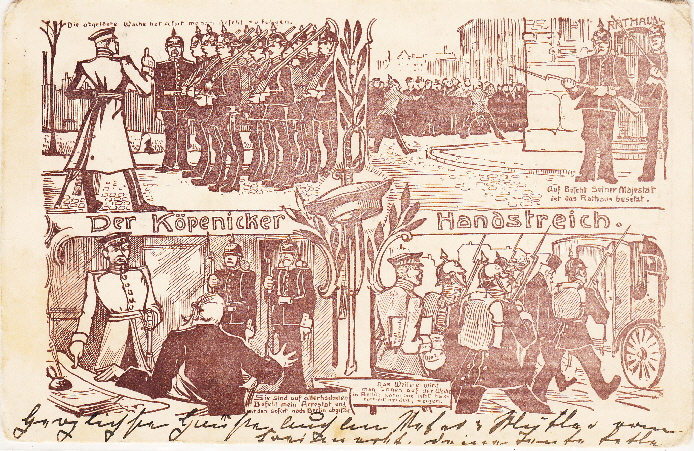 Die abgelöste Wache hat sofort meinem Befehl zu folgen.
RATHAUS
Auf Befehl Seiner Majestät
ist das Rathaus besetzt.
Der Köpenicker Handstreich.
Sie sind auf allerhöchsten
Befehl mein Arrestat und
werden sofort nach Berlin abgeführt
Das Weitere wird
man Ihnen auf der Wache
in Berlin
Herzlichste Grüße auch an Vater & Mutter von
deine Tante